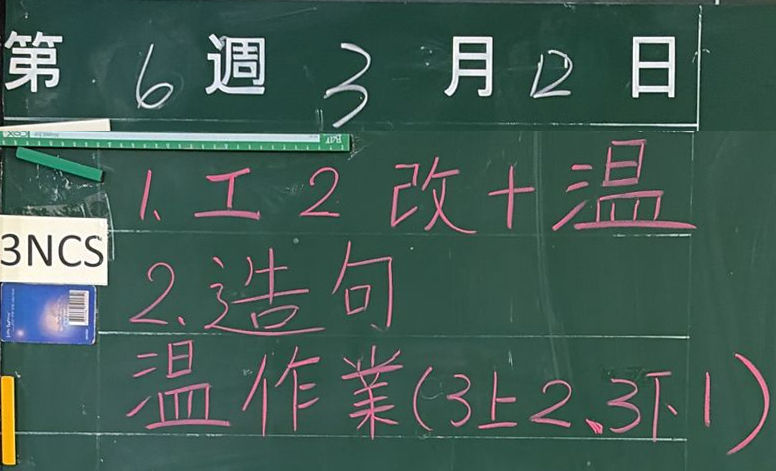 第 6 週 3 月 12 日
1. 工 2 改+温
3NCS
2. 造句
温作業(3上2、3下1)